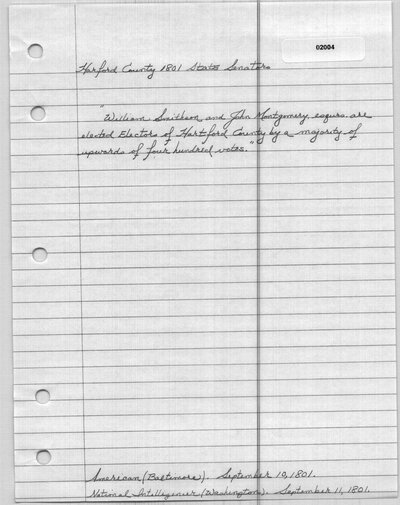 02004
Harford County 1801 State Senators
"William Smithson and John Montgomery, esqurs. are
elected Electors of Hartford County by a majority of
upwards of four hundred votes."
American (Baltimore). September 10, 1801.
National Intelligencer (Washington). September 11, 1801.